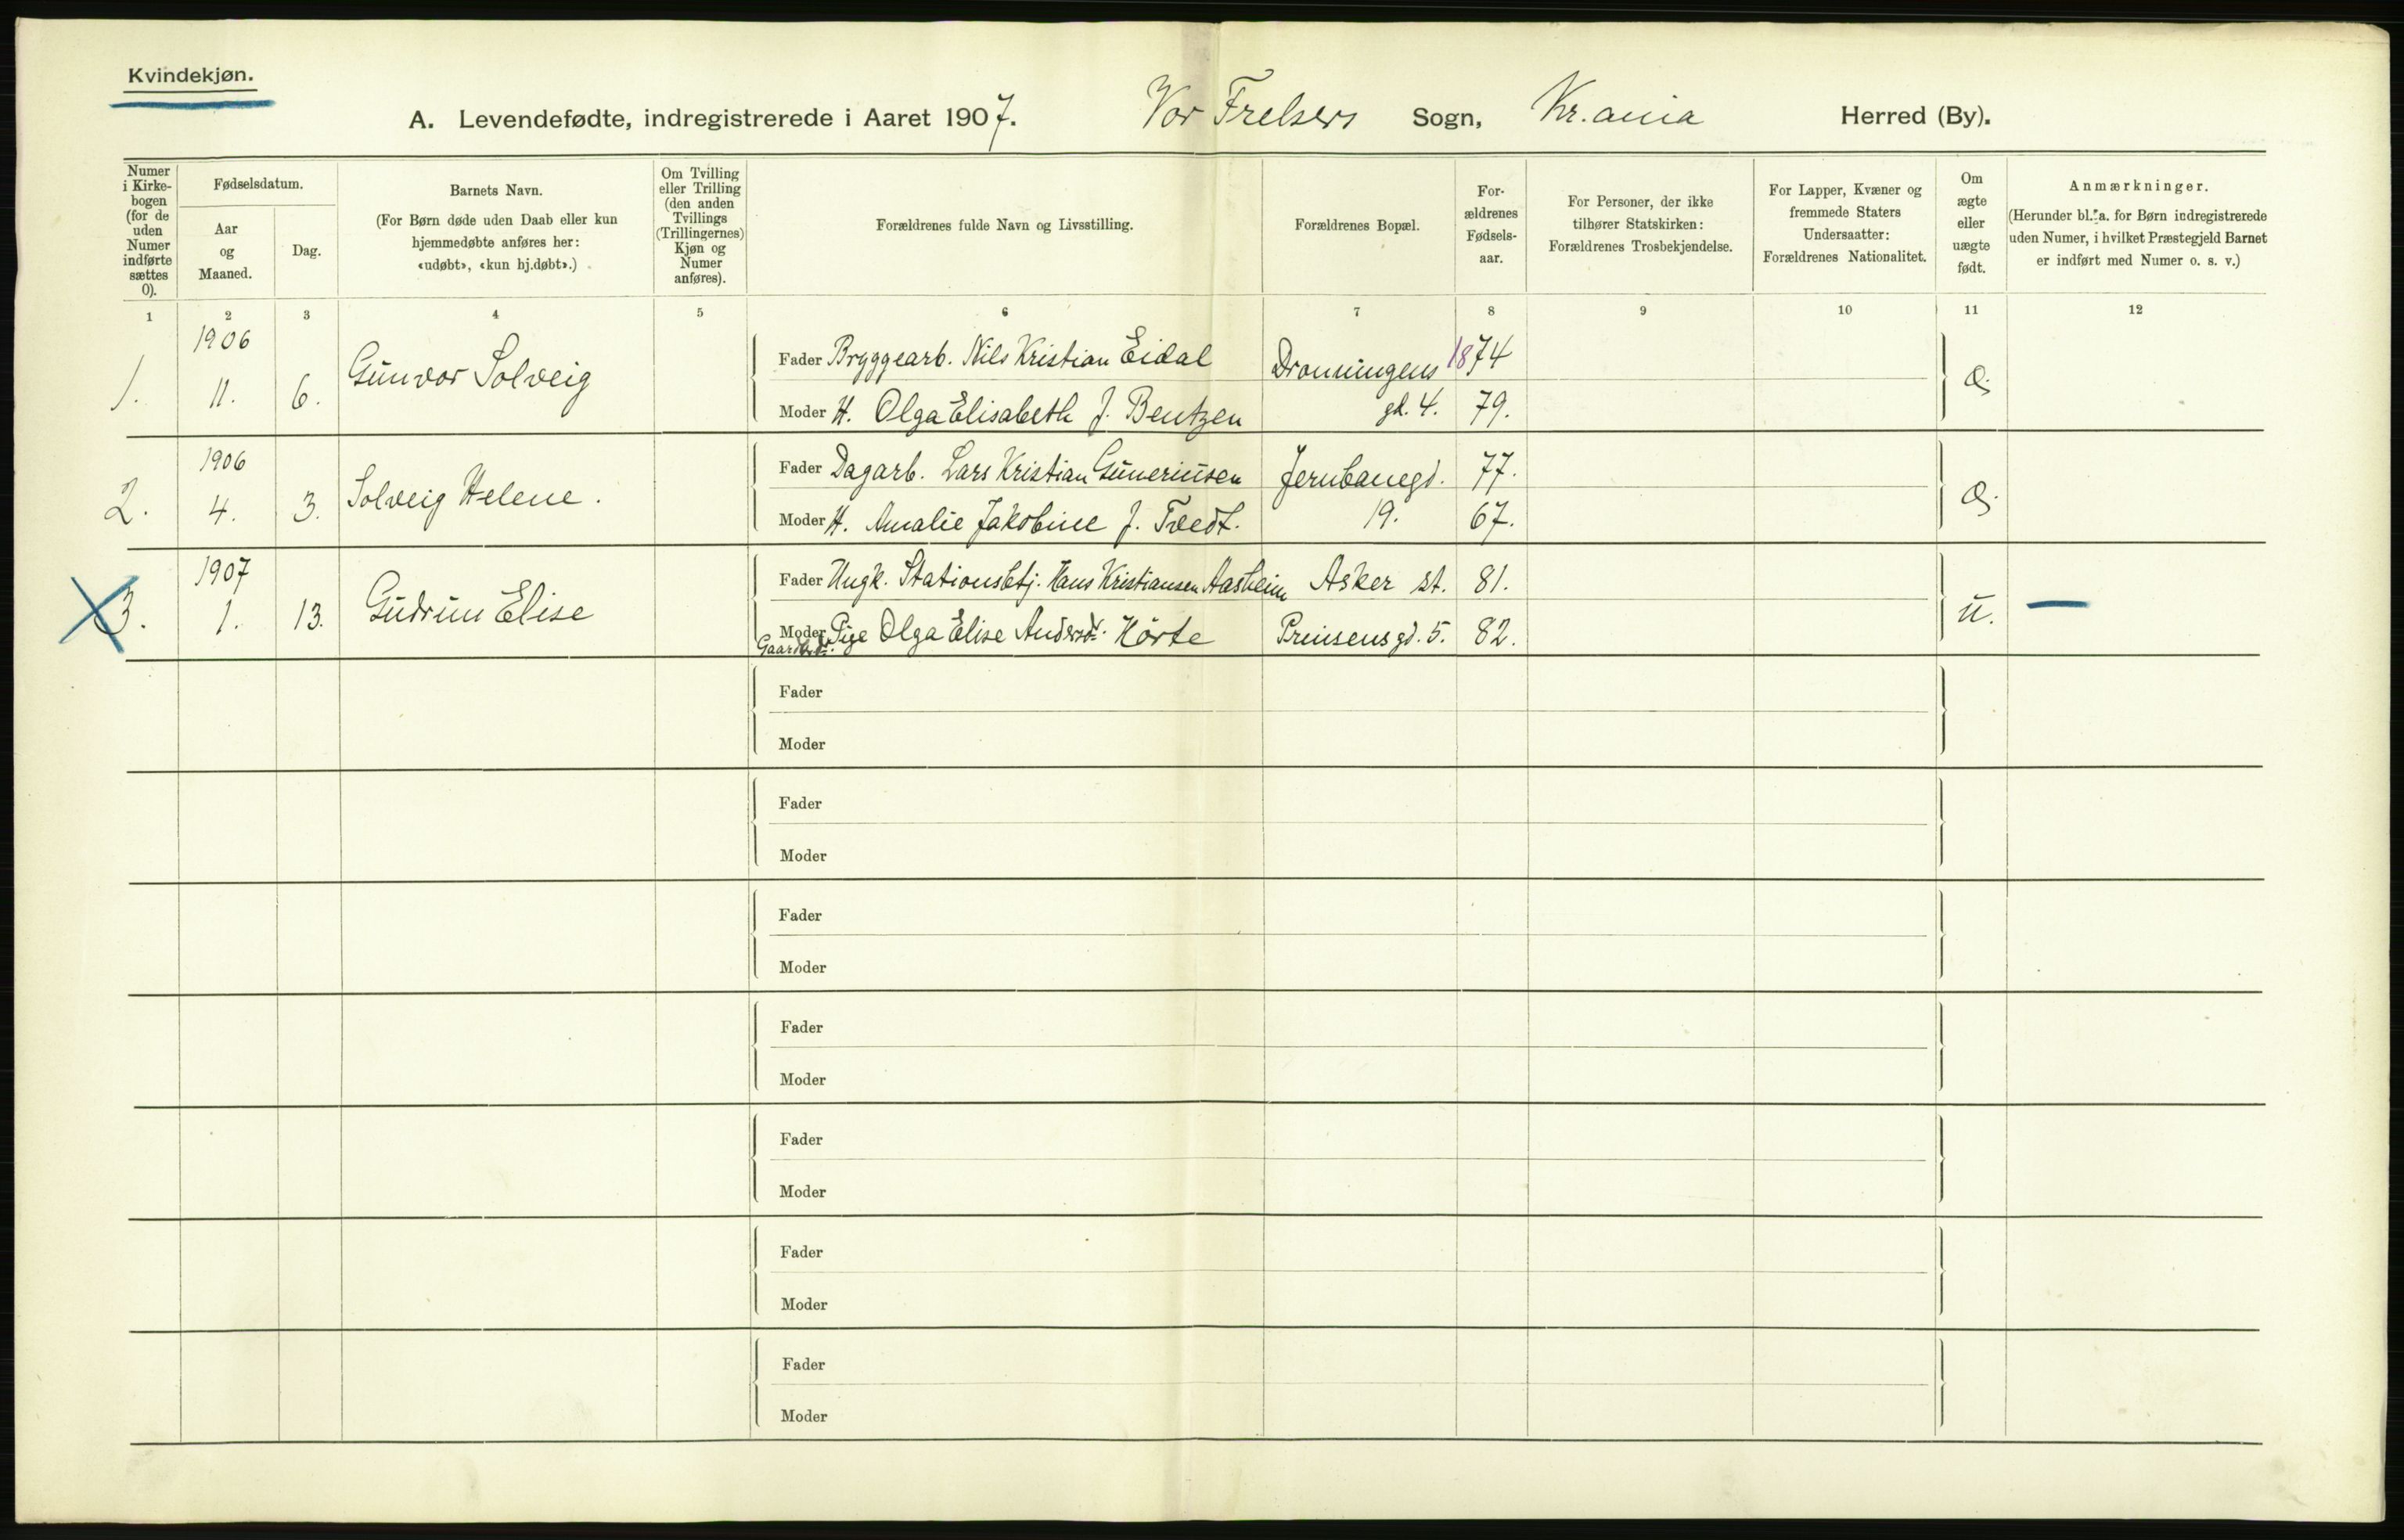 Kvindekjøn.
A. Levendefødte, indregistrerede i Aaret 1907. Vor Frelsers Sogn, Kr.ania Herred (By).
Numer i Kirke-bogen (for de uden Numer indførte sættes 0).
Fødselsdatum.
Aar og Maaned.
Dag.
Barnets Navn.
(For Børn døde uden Daab eller kun
hjemmedøbte anføres her:
«udøbt», «kun hj.døbt».)
Om Tvilling
eller Trilling
(den anden
Tvillings
(Trillingernes)
Kjøn og
Numer
anføres).
Forældrenes fulde Navn og Livsstilling.
Forældrenes Bopæl.
For-
ældrenes
Fødsels-
aar.
For Personer, der ikke
tilhører Statskirken:
Forældrenes Trosbekjendelse.
For Lapper, Kvæner og
fremmede Staters
Undersaatter:
Forældrenes Nationalitet.
Om
ægte
eller
uægte
født.
Anmærkninger.
(Herunder bl. a. for Børn indregistrerede
uden Numer, i hvilket Præstegjeld Barnet
er indført med Numer o. s. v.)
1 2 3 4 5 6 7 8 9 10 11 12
1906
1. 11. 6. Gunvor Solveig
Fader Bryggearb. Nils Kristian Eidal Dronningens 1874
Moder H. Olga Elisabeth f. Bentzen gd. 4. 79. æ.
1906
2. 4. 3. Solveig Helene.
Fader Dagarb. Lars Kristian Guneriusen Jernbanegd. 77.
Moder H. Amalie Jakobine f. Tvedt. 19. 67. æ.
1907
3. 1. 13. Gudrun Elise
Fader Ungk. Stationsbtj. Hans Kristiansen Aasheim Asker st. 81.
Moder Pige Olga Elise Andersdr. Hörte Prinsensgd. 5. 82. u. —
Fader
Moder
Fader
Moder
Fader
Moder
Fader
Moder
Fader
Moder
Fader
Moder
Fader
Moder